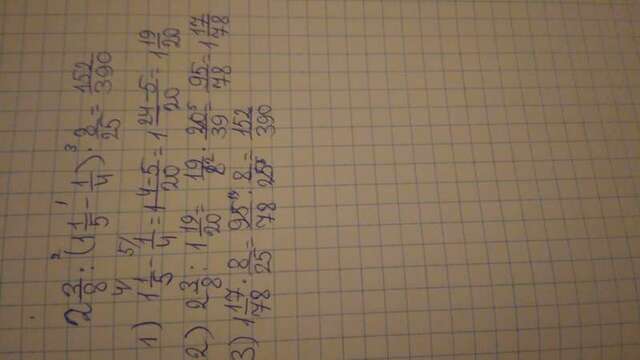 2 3/8 : (1 1/5 - 1/4) · 8/25 = 152/390
1) 1 1/5 - 1/4 = 1 4-5/20 = 1 24-5/20 = 1 19/20
2) 2 3/8 : 1 19/20 = 19/8 · 20/39 = 95/78 = 1 17/78
3) 1 17/78 · 8/25 = 95/78 · 8/25 = 152/390